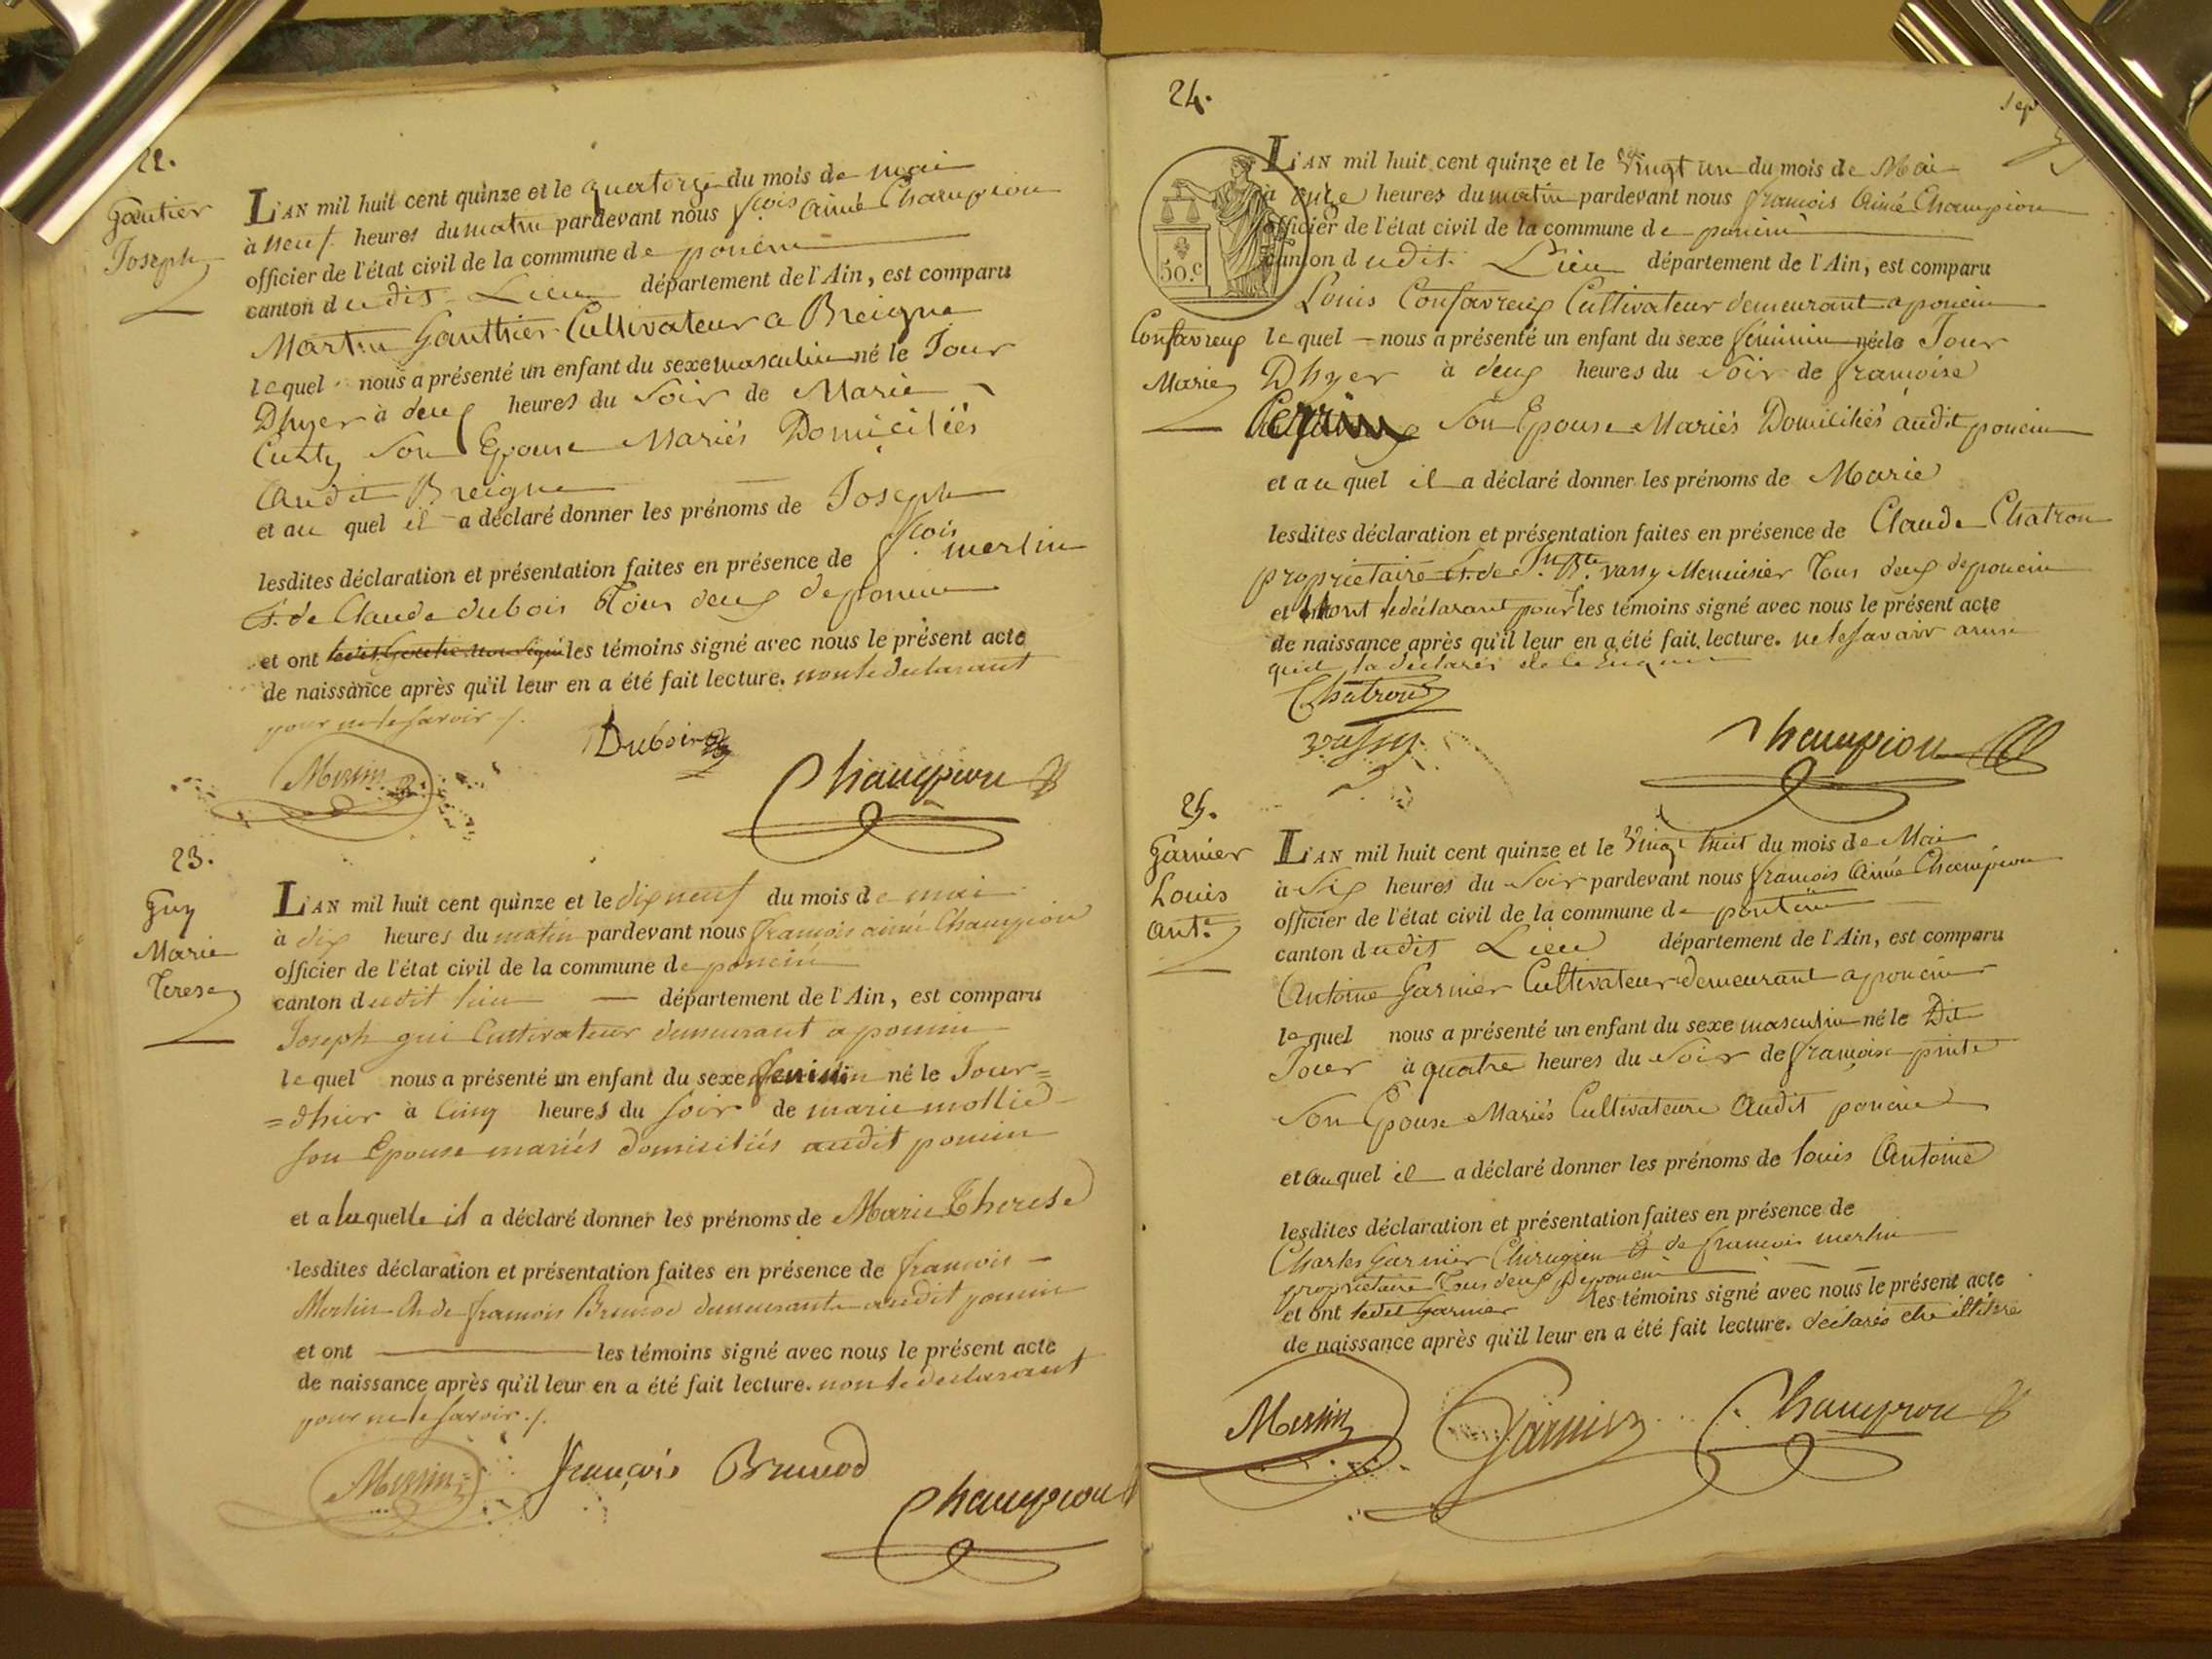 22.
Gautier
Joseph
L'AN mil huit cent quinze et le quatorze du mois de mai
à neuf heures du matin pardevant nous fcois Aimé Champion
officier de l'état civil de la commune de poncin
canton dudit Lieu département de l'Ain, est comparu
Martin Gauthier Cultivateur a Breigne
lequel nous a présenté un enfant du sexe masculin né le Jour
Dhyer à deux heures du Soir de Marie
Cuzty Son Epouse Mariés Domiciliés
Audit Breigne
et au quel il a déclaré donner les prénoms de Joseph
lesdites déclaration et présentation faites en présence de fcois merlin
& de Claude dubois Tous deux de poncin
et ont les témoins signé avec nous le présent acte
de naissance après qu'il leur en a été fait lecture. non le declarant
pour ne le savoir /.
Merlin
Dubois
Champion
23.
Guy
Marie
Terese
L'AN mil huit cent quinze et le dix neuf du mois de mai
à dix heures du matin pardevant nous francois aimé Champion
officier de l'état civil de la commune de poncin
canton dudit lieu département de l'Ain, est comparu
Joseph gui Cultivateur demeurant a poncin
le quel nous a présenté un enfant du sexe feminin né le Jour=
=dhier à Cinq heures du soir de marie mollie
son Epouse mariés domiciliés audit poncin
et a laquelle il a déclaré donner les prénoms de Marie Therese
lesdites déclaration et présentation faites en présence de francois
Merlin & de francois Brunod demeurants audit poncin
et ont les témoins signé avec nous le présent acte
de naissance après qu'il leur en a été fait lecture. non le declarant
pour ne le savoir ./.
Merlin
françois Brunod
Champion
24.
Sep
50.c
Confavreux
Marie
L'AN mil huit cent quinze et le Vingt un du mois de Mai
à onze heures du matin pardevant nous francois Aimé Champion
officier de l'état civil de la commune de poncin
canton dudit Lieu département de l'Ain, est comparu
Louis Confavreux Cultivateur demeurant a poncin
le quel nous a présenté un enfant du sexe féminin né le Jour
Dhyer à deux heures du Soir de francoise
Son Epouse Mariés Domiciliés audit poncin
et au quel il a déclaré donner les prénoms de Marie
lesdites déclaration et présentation faites en présence de Claude Chatron
propriétaire & de Jn Bte vassy Menuisier Tous deux de poncin
et ont le déclarant pour les témoins signé avec nous le présent acte
de naissance après qu'il leur en a été fait lecture. ne le savoir
Chatron
Vassy
Champion
25.
Garnier
Louis
Ant.e
L'AN mil huit cent quinze et le Vingt huit du mois de Mai
à Six heures du Soir pardevant nous francois Aimé Champion
officier de l'état civil de la commune de poncin
canton dudit Lieu département de l'Ain, est comparu
Antoine Garnier Cultivateur demeurant a poncin
le quel nous a présenté un enfant du sexe masculin né le Dit
Jour à quatre heures du Soir de francoise
Son Epouse Mariés Cultivateurs Audit poncin
et au quel il a déclaré donner les prénoms de Louis Antoine
lesdites déclaration et présentation faites en présence de
Charles Garnier Chirugien & de francois merlin
propriétaire Tous deux de poncin
et ont ledit garnier les témoins signé avec nous le présent acte
de naissance après qu'il leur en a été fait lecture. déclarés etre illitéré
Merlin
Garnier
Champion